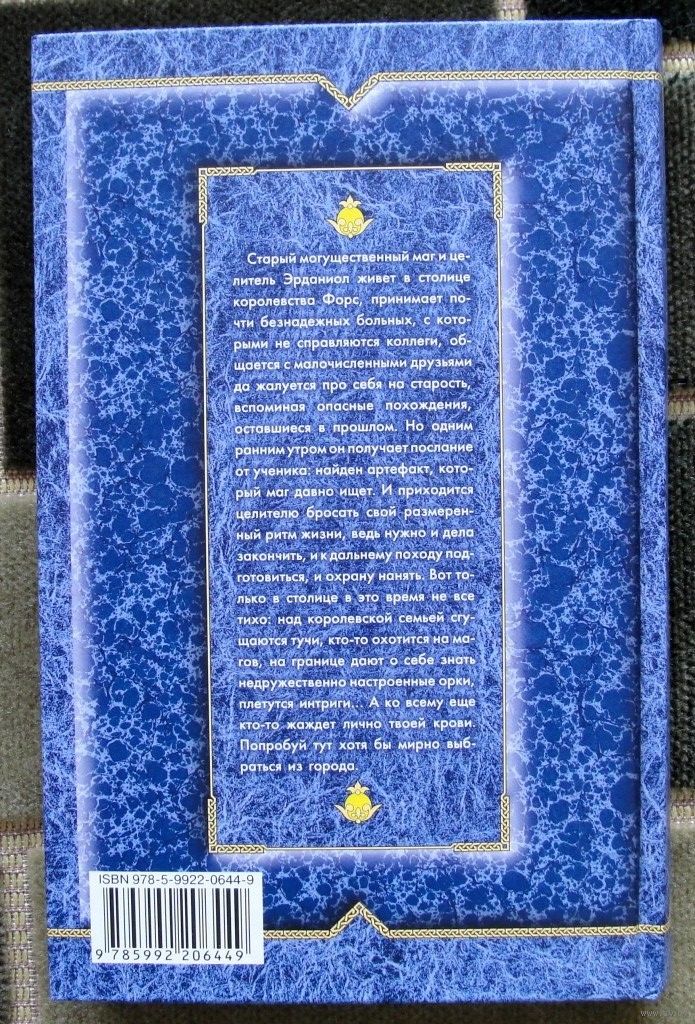 Старый могущественный маг и це-
литель Эрданиол живет в столице
королевства Форс, принимает по-
чти безнадежных больных, с кото-
рыми не справляются коллеги, об-
щается с малочисленными друзьями
да жалуется про себя на старость,
вспоминая опасные похождения,
оставшиеся в прошлом. Но одним
ранним утром он получает послание
от ученика: найден артефакт, кото-
рый маг давно ищет. И приходится
целителю бросать свой размерен-
ный ритм жизни, ведь нужно и дела
закончить, и к дальнему походу под-
готовиться, и охрану нанять. Вот то-
лько в столице в это время не все
тихо: над королевской семьей сгу-
щаются тучи, кто-то охотится на ма-
гов, на границе дают о себе знать
недружественно настроенные орки,
плетутся интриги... А ко всему еще
кто-то жаждет лично твоей крови.
Попробуй тут хотя бы мирно выб-
раться из города.
ISBN 978-5-9922-0644-9
9 785992 206449